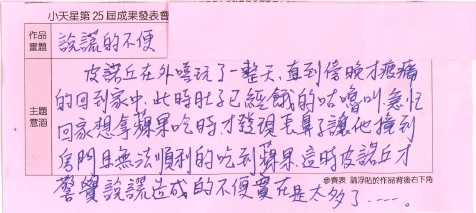 小天星第25屆成果發表會
作品畫題
說謊的不便
主題意涵
皮諾丘在外嘻玩了一整天,直到傍晚才疲憊
的回到家中,此時肚子已經餓的咕嚕叫,急忙
回家想拿蘋果吃時,才發現長鼻子讓他撞到
房門且無法順利的吃到蘋果,這時皮諾丘才
驚覺說謊造成的不便實在是太多了……。
參賽表 請浮貼於作品背後右下角